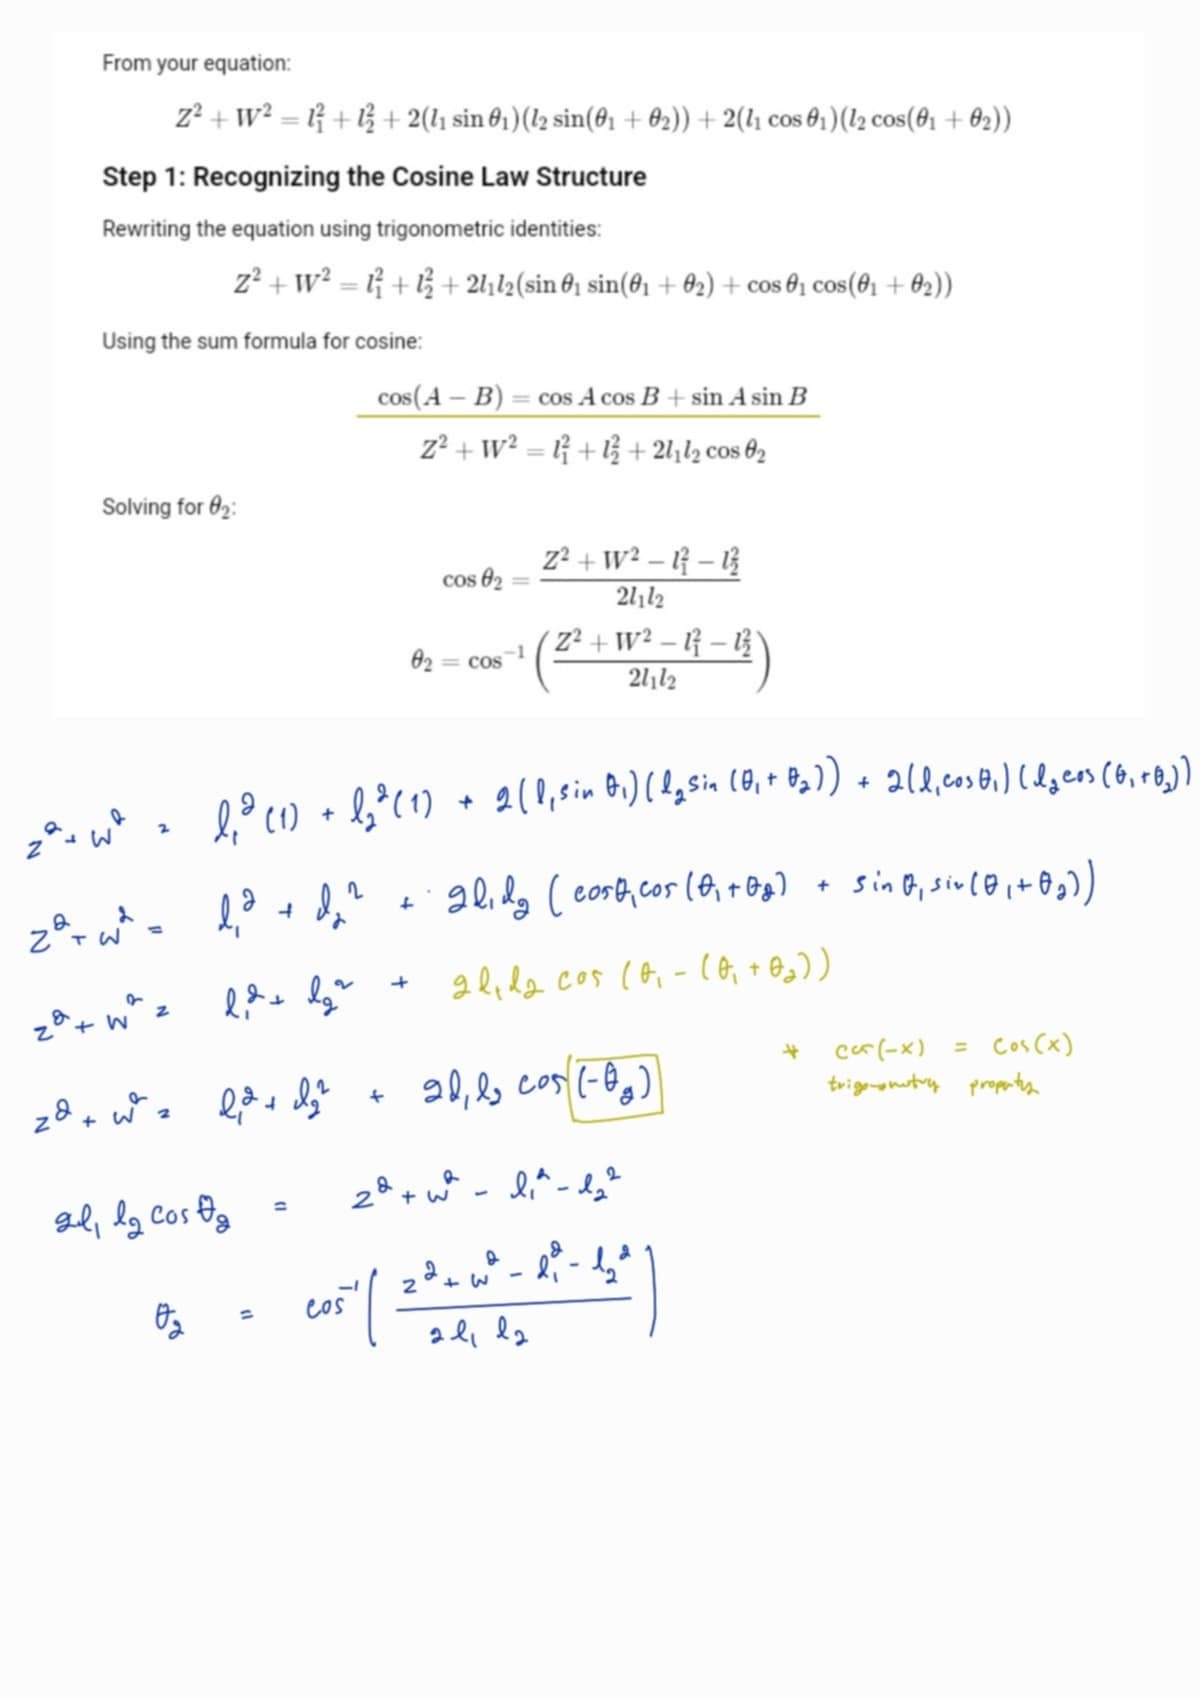 From your equation:
Z² + W² = l₁² + l₂² + 2(l₁ sin θ₁)(l₂ sin(θ₁ + θ₂)) + 2(l₁ cos θ₁)(l₂ cos(θ₁ + θ₂))
Step 1: Recognizing the Cosine Law Structure
Rewriting the equation using trigonometric identities:
Z² + W² = l₁² + l₂² + 2l₁l₂(sin θ₁ sin(θ₁ + θ₂) + cos θ₁ cos(θ₁ + θ₂))
Using the sum formula for cosine:
cos(A − B) = cos A cos B + sin A sin B
Z² + W² = l₁² + l₂² + 2l₁l₂ cos θ₂
Solving for θ₂:
cos θ₂ = (Z² + W² − l₁² − l₂²) / 2l₁l₂
θ₂ = cos⁻¹ ((Z² + W² − l₁² − l₂²) / 2l₁l₂)
z² + w² = l₁²(1) + l₂²(1) + 2(l₁ sin θ₁)(l₂ sin (θ₁ + θ₂)) + 2(l₁ cos θ₁)(l₂ cos (θ₁ + θ₂))
z² + w² = l₁² + l₂² + 2l₁l₂ (cos θ₁ cos (θ₁ + θ₂) + sin θ₁ sin (θ₁ + θ₂))
z² + w² = l₁² + l₂² + 2l₁l₂ cos (θ₁ - (θ₁ + θ₂))
z² + w² = l₁² + l₂² + 2l₁l₂ cos (-θ₂)
* cos(-x) = cos(x)
trigonometry property
2l₁l₂ cos θ₂ = z² + w² - l₁² - l₂²
θ₂ = cos⁻¹ ((z² + w² - l₁² - l₂²) / 2l₁l₂)